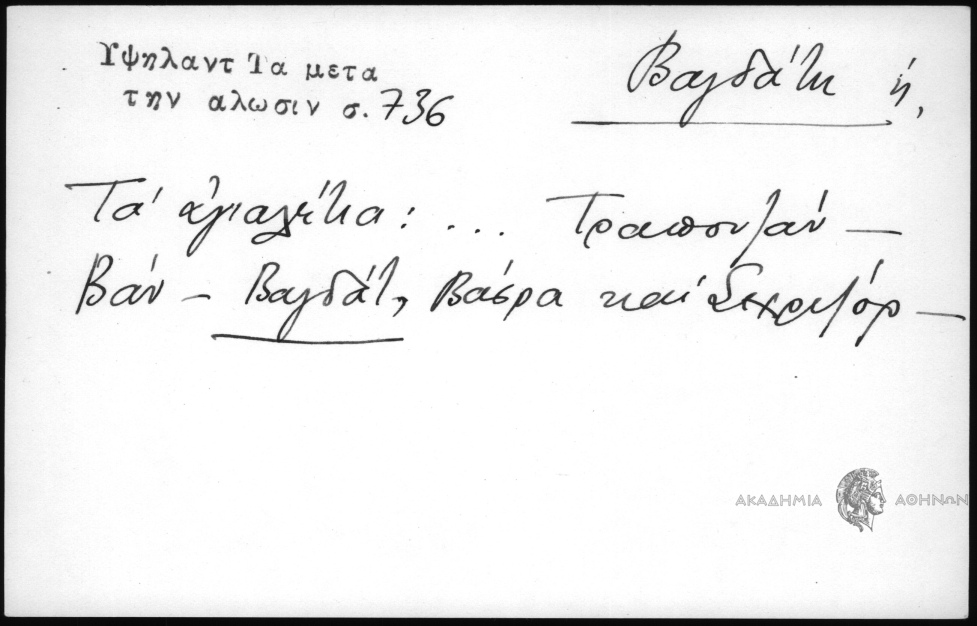 Υψηλαντ Τα μετα
την αλωσιν σ. 736
Βαγδάτη ή,
Τά ἀγιαλέτια: ... Τραπουζάν —
Βάν — Βαγδάτ, Βάσρα καί Σεχριζόρ —
ΑΚΑΔΗΜΙΑ ΑΘΗΝΩΝ